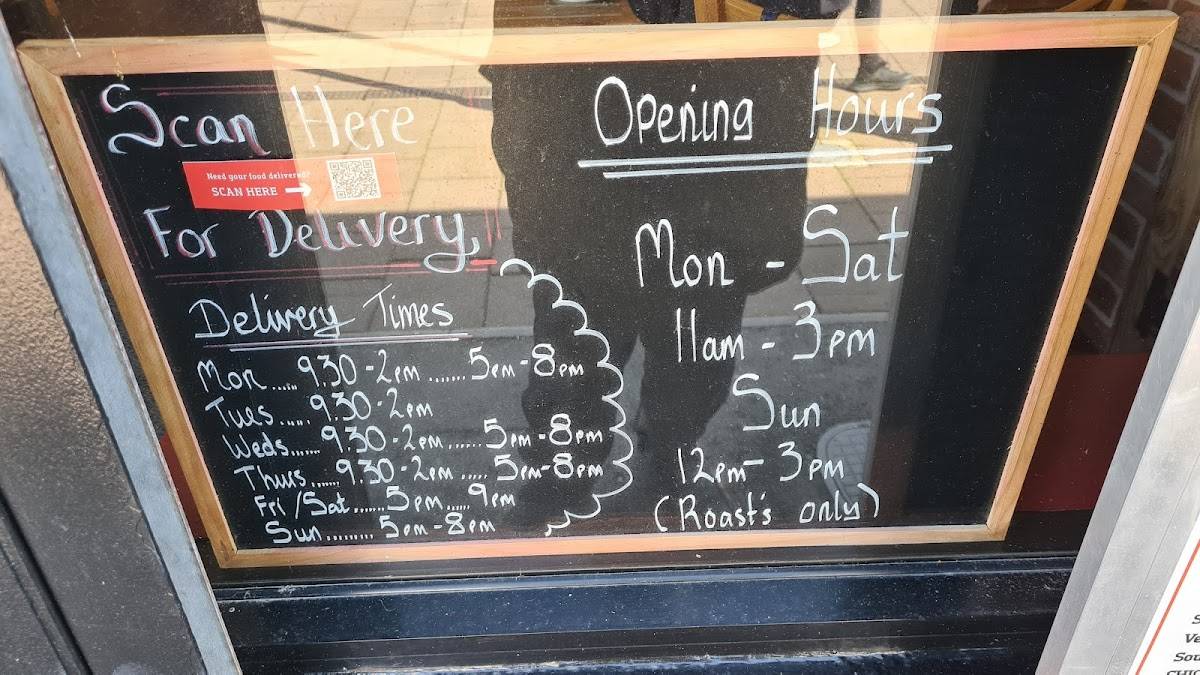 Scan Here
Need your food delivered?
SCAN HERE
For Delivery,
Delivery Times
Mon ..... 9.30 - 2pm ....... 5pm - 8pm
Tues ..... 9.30 - 2pm
Weds ...... 9.30 - 2pm ...... 5pm - 8pm
Thurs ...... 9.30 - 2pm ..... 5pm - 8pm
Fri / Sat ...... 5pm ..... 9pm
Sun ......... 5pm - 8pm
Opening Hours
Mon - Sat
11am - 3pm
Sun
12pm - 3pm
(Roast's only)